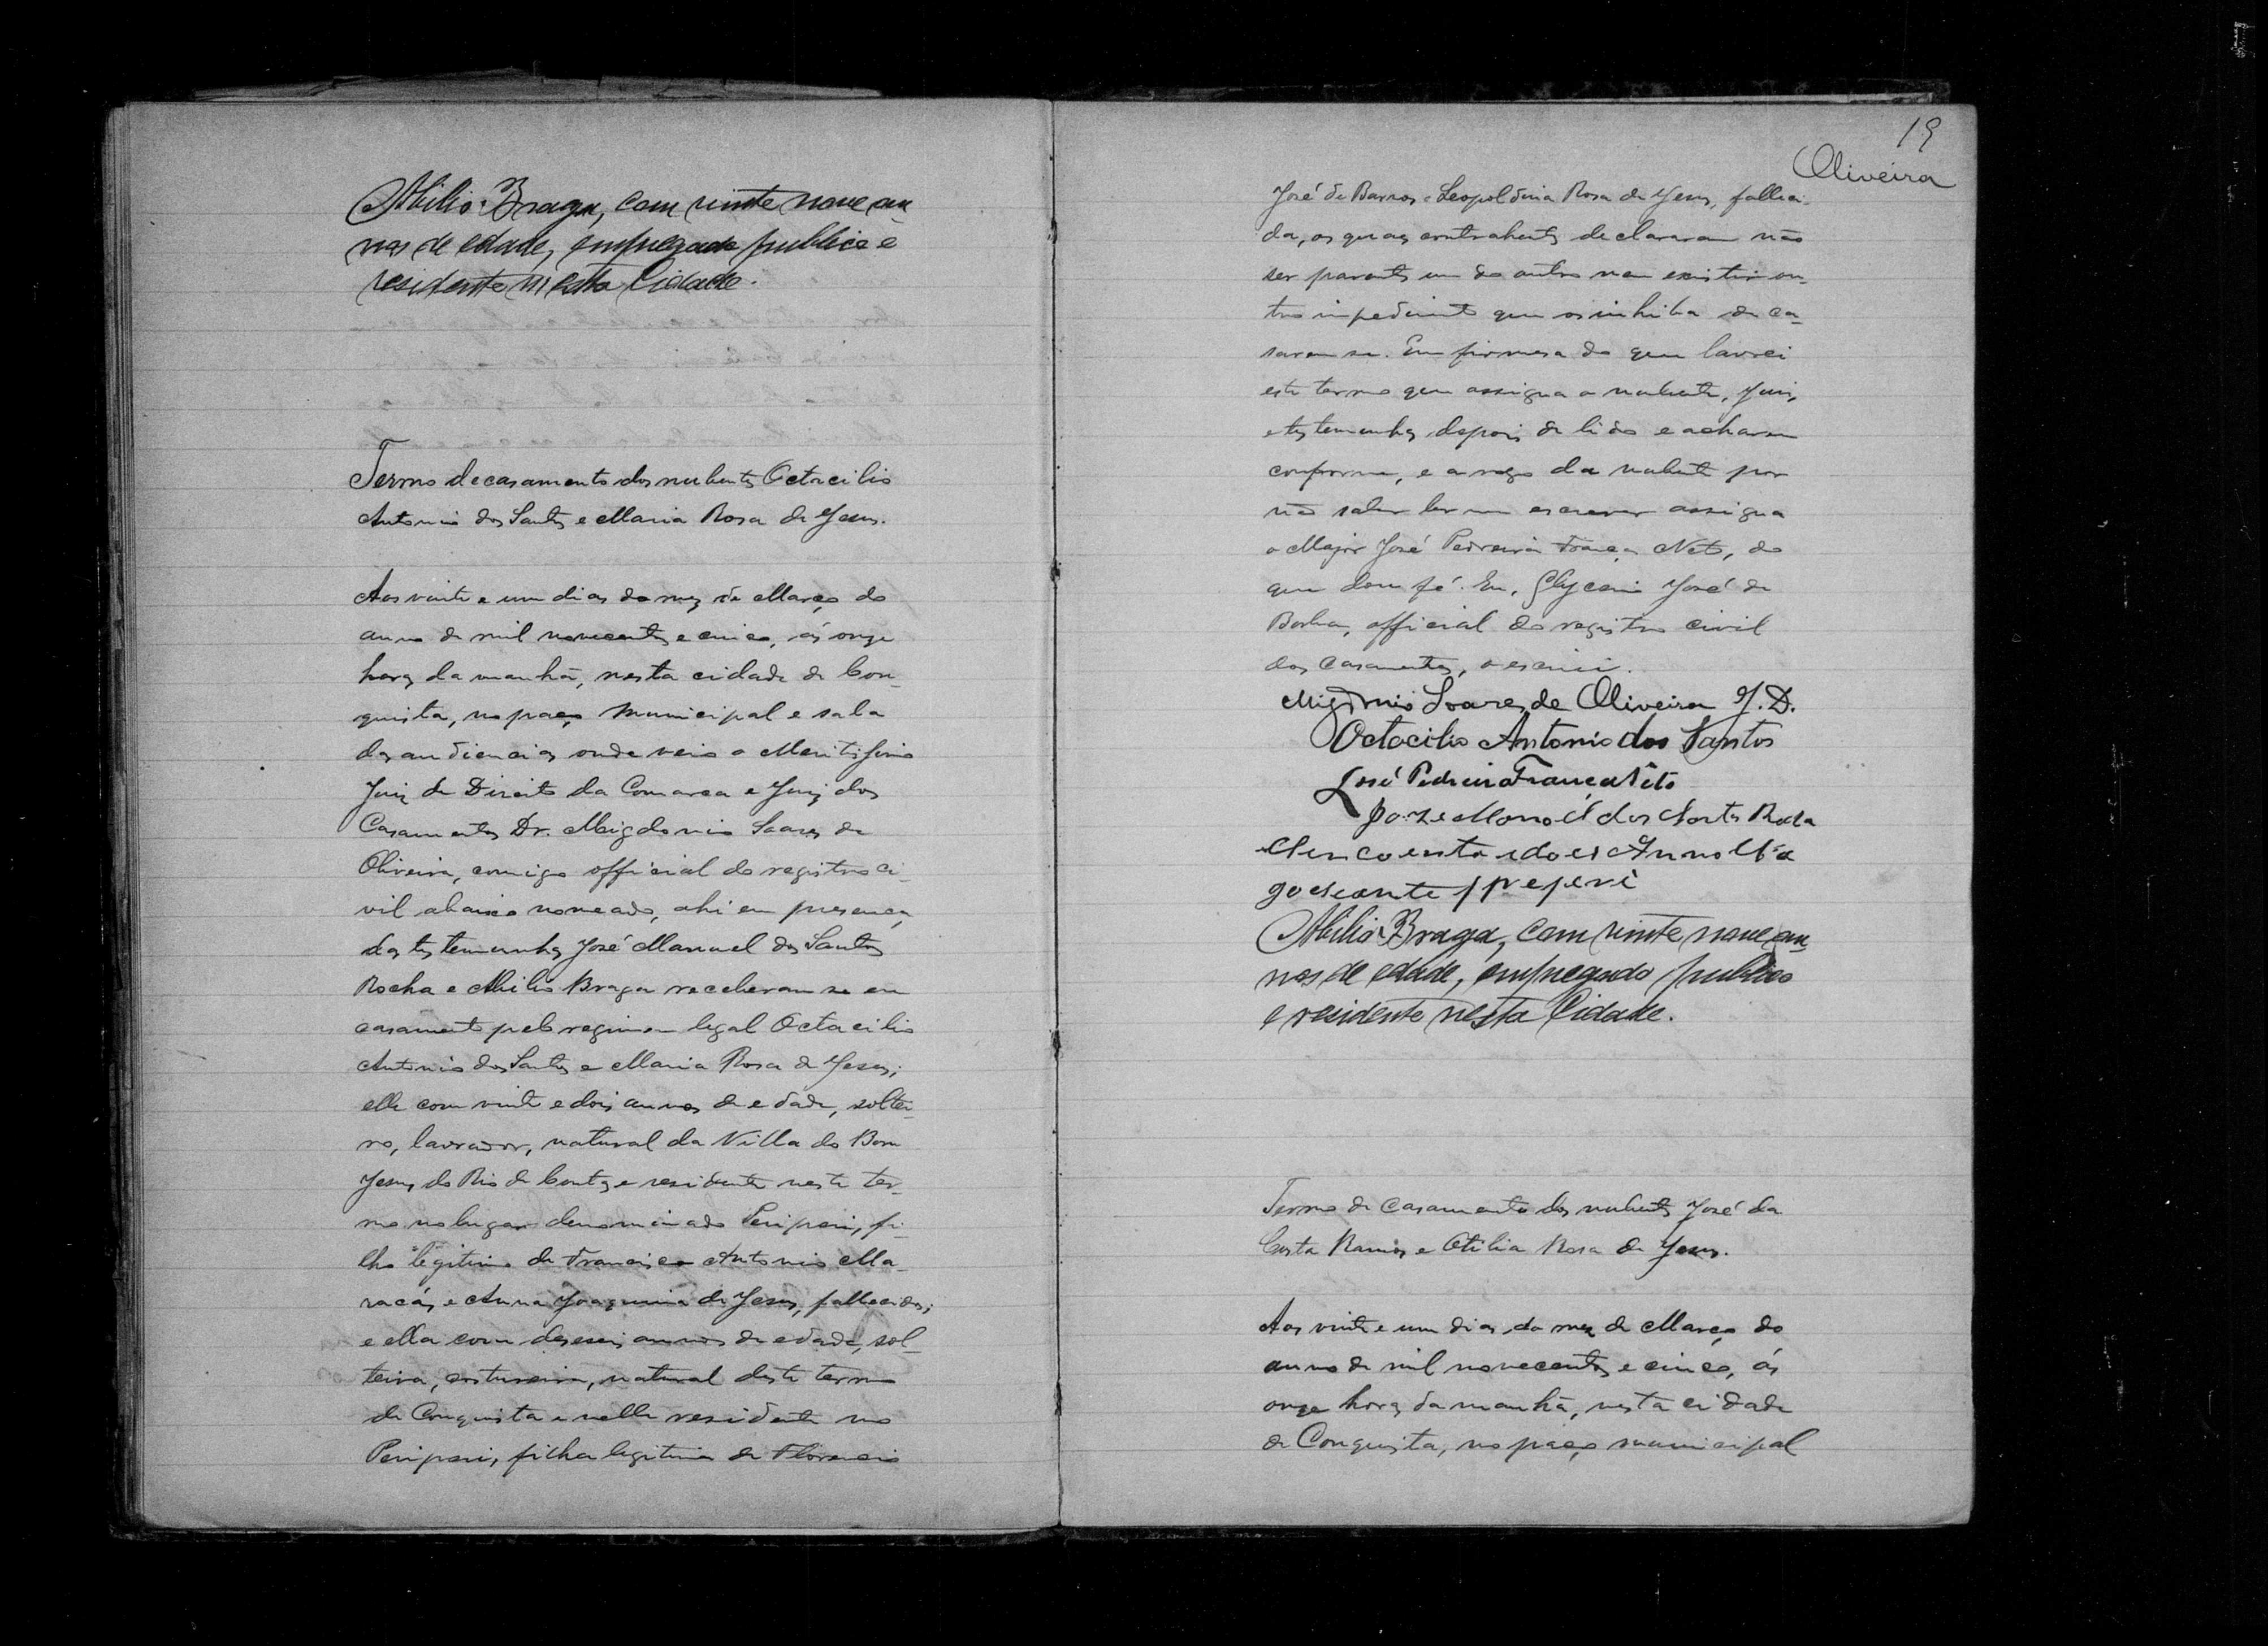 Abilio Braga, com vinte nove an
nos de edade, empregado publico e
residente n'esta Cidade.
Termo de casamento dos nubentes Octacilio
Antonio dos Santos e Maria Rosa de Jesus.
Aos vinte e um dias do mez de Março do
anno de mil novecentos e cinco, ás onze
horas da manhã, nesta cidade de Con-
quista, no paço Municipal e sala
das audiencias onde veio o Meritissimo
Juiz de Direito da Comarca e Juiz dos
Casamentos Dr. Migdonio Soares de
Oliveira, comigo official do registro ci-
vil abaixo nomeado, ahi em presença
das testemunhas José Manuel dos Santos
Rocha e Abilio Braga receberam se em
casamento pelo regimen legal Octacilio
Antonio dos Santos e Maria Rosa de Jesus;
elle com vinte e dois annos de edade, soltei-
ro, lavrador, natural da Villa do Bom
Jesus do Rio de Contas e residente neste ter-
mo no lugar denominado Peripiri, fi-
lho legitimo de Francisco Antonio Ma-
racás e Anna Joaquina de Jesus, fallecidos;
e ella com deseseis annos de edade, sol-
teira, costureira, natural deste termo
de Conquista e nelle residente no
Peripiri, filha legitima de Florencio
19
Oliveira
José de Barros e Leopoldina Rosa de Jesus, falleci-
da, os quaes contrahentes declararam não
ser parentes um do outro nem existir ou-
tro impedimento que os inhiba de ca-
sarem se. Em firmesa do que lavrei
este termo que assigna o nubente, Juiz,
e testemunhas depois de lido e acharem
conforme, e a rogo da nubente por
não saber ler nem escrever assigna
o Major José Pedreira França Neto, do
que dou fé. Eu, Glycerio José de
Borba, official do registro civil
dos casamentos, o escrivi.
Migdonio Soares de Oliveira J. D.
Octacilio Antonio dos Santos
José Pedreira França Nêto
Joze Manoel dos Santos Rocha
Cincoenta e dois Annos
Peripiri
Abilio Braga, com vinte nove an
nos de edade, empregado publico
e residente nesta Cidade.
Termo de casamento dos nubentes José da
Costa Ramos e Otilia Rosa de Jesus.
Aos vinte e um dias do mez de Março do
anno de mil novecentos e cinco, ás
onze horas da manhã, nesta cidade
de Conquista, no paço municipal